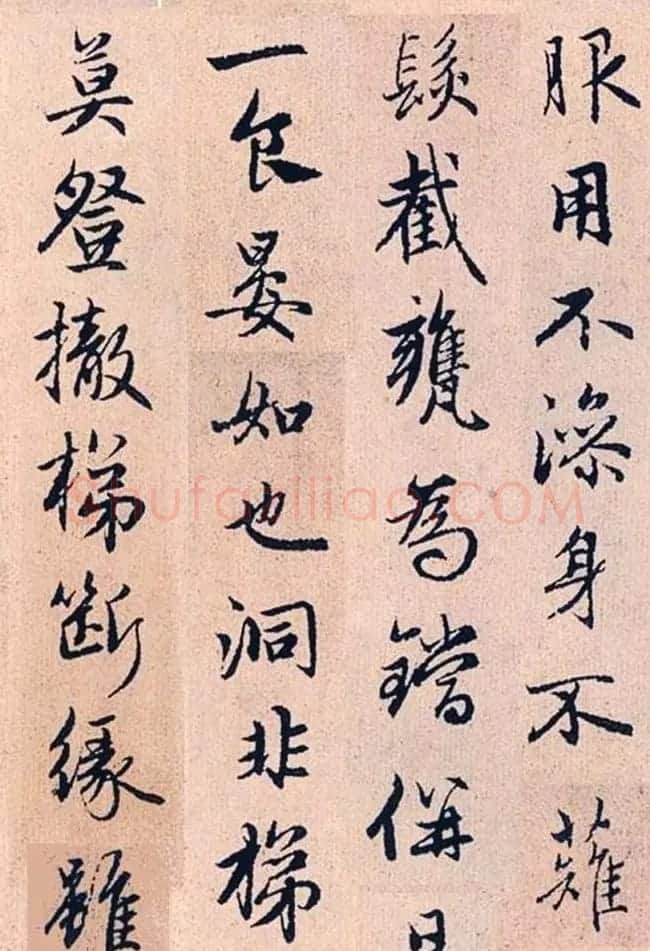 服用不澡身不薙
髮截甕為鐺併日
一食晏如也洞非梯
莫登撤梯斷緣雖
ShufaZiliao.COM